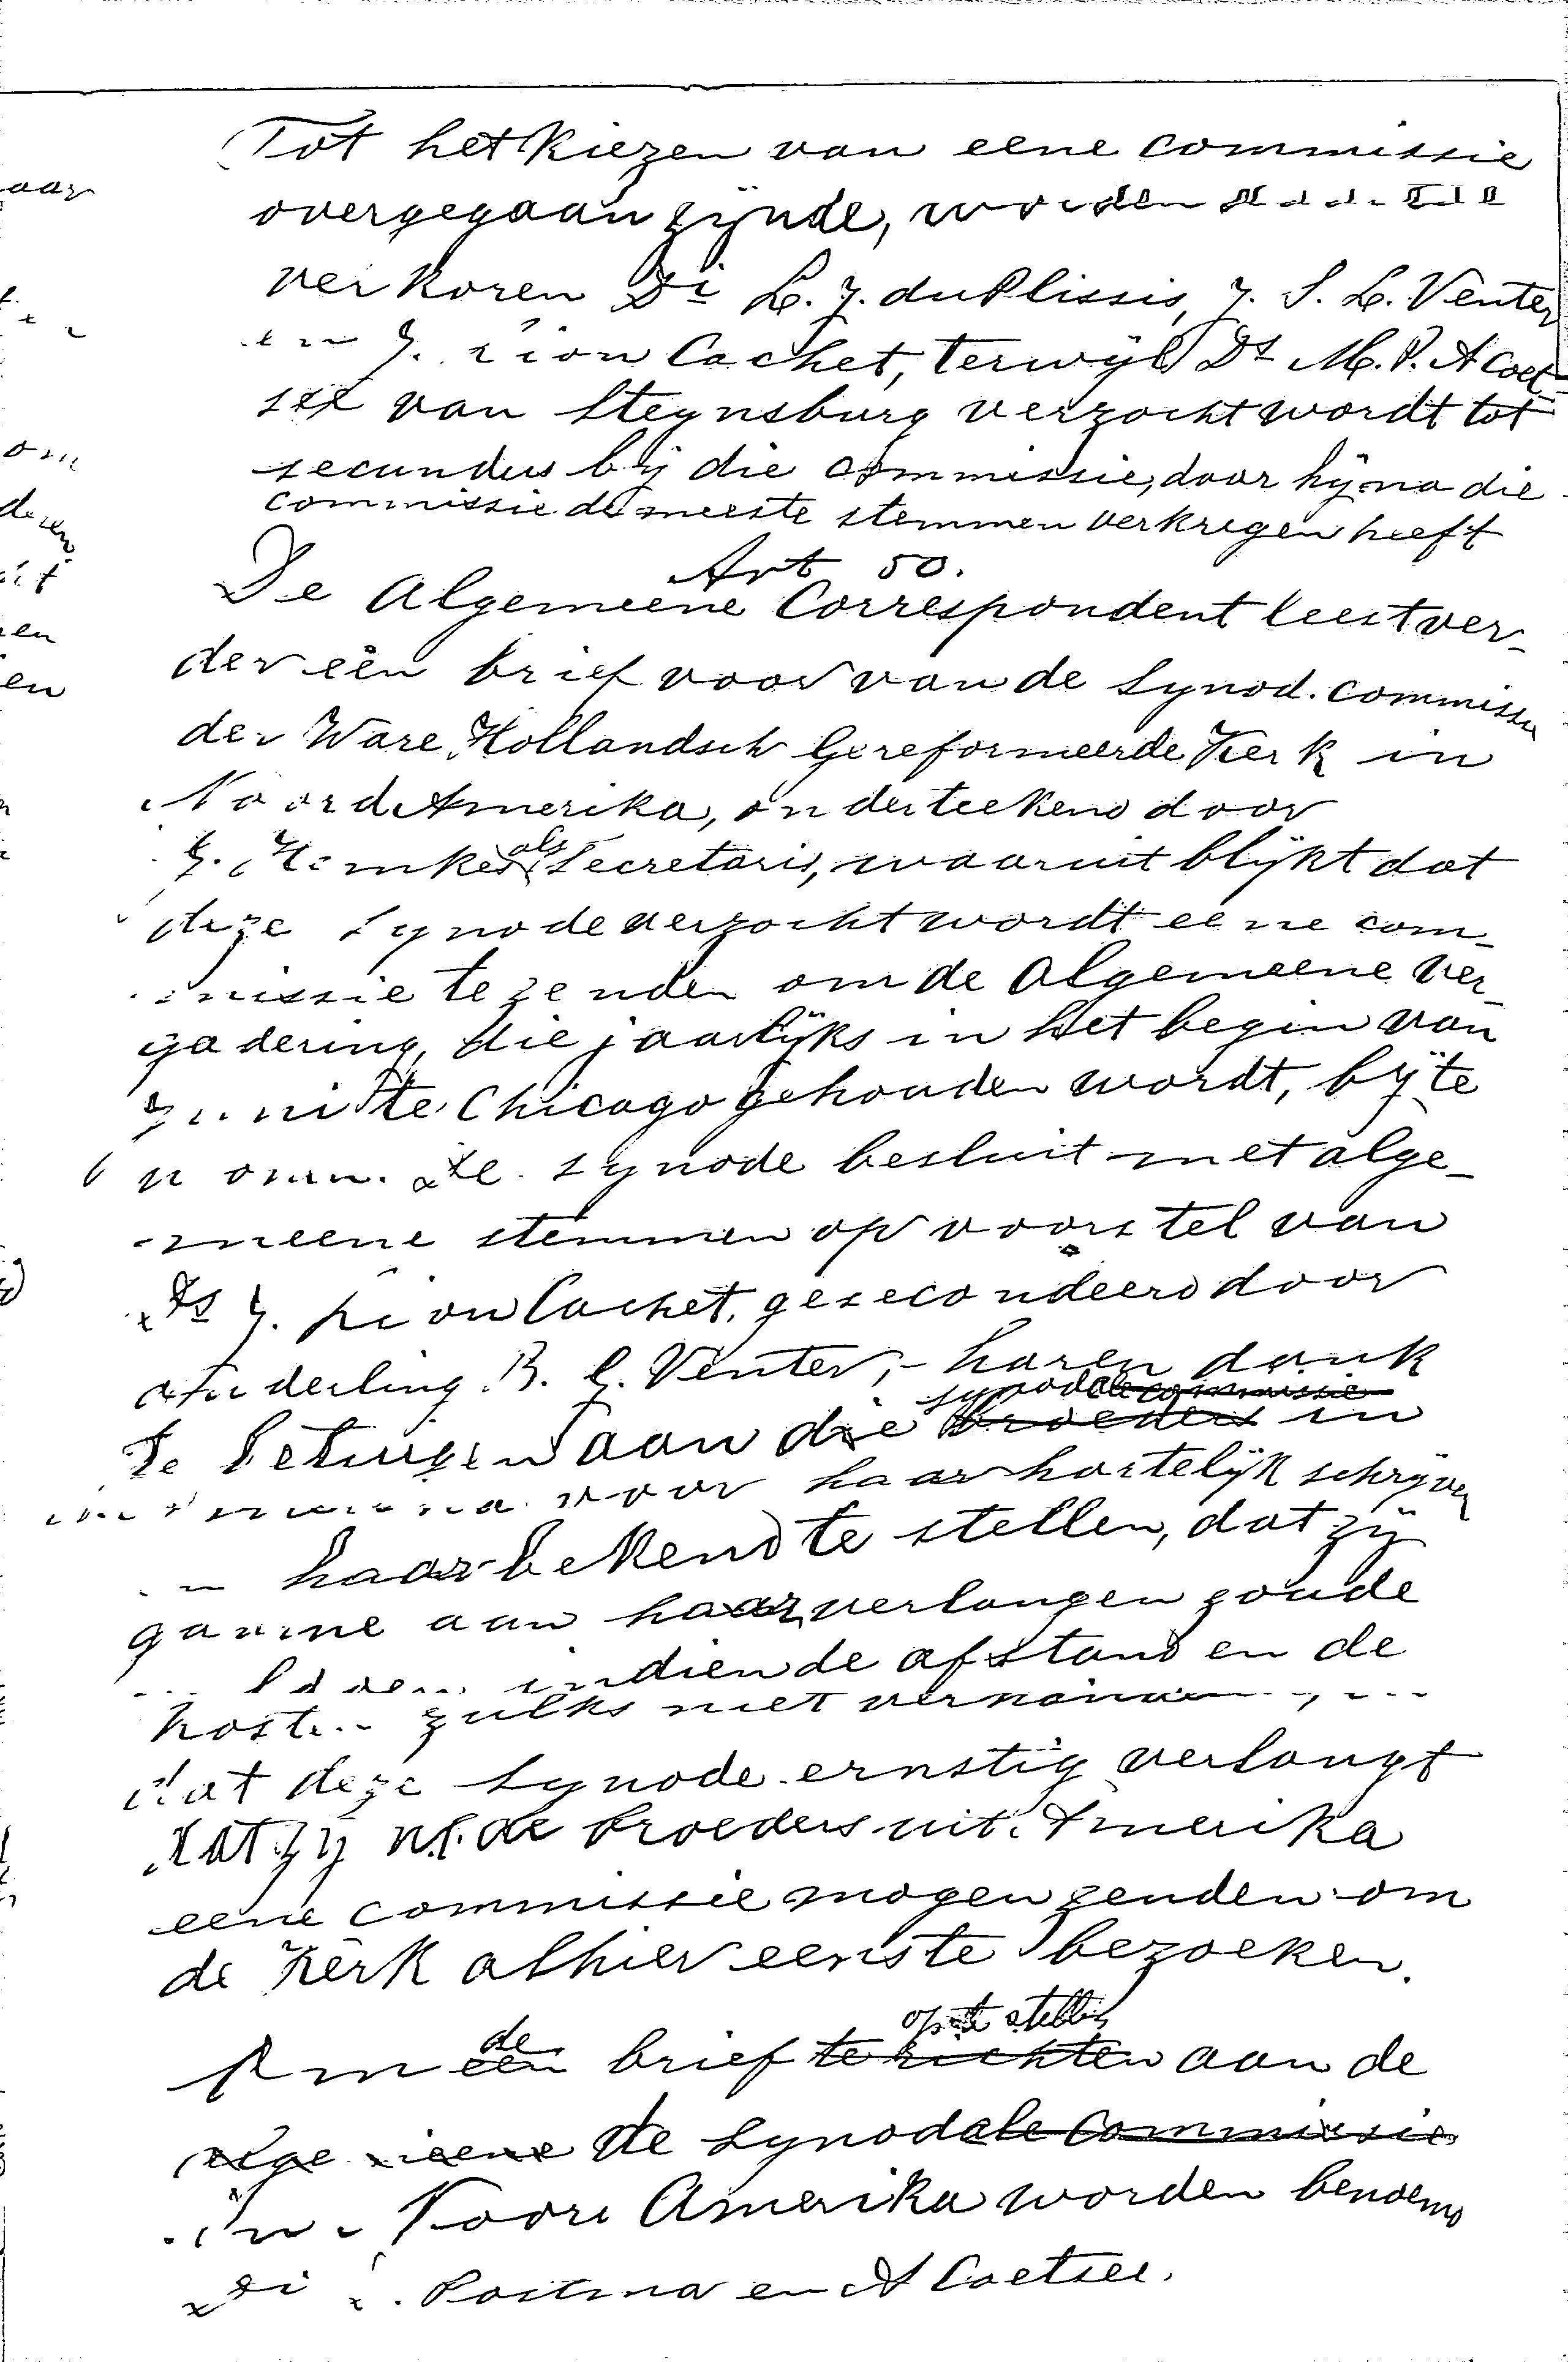 Tot het kiezen van eene commissie
overgegaan zijnde, worden
verkoren Di L. J. du Plissis, J. S. L. Venter
en J. Lion Cachet, terwijl Ds M. P. A Coet-
see van Steynsburg verzocht wordt tot
secundus bij die commissie, daar hij na die
commissie de meeste stemmen verkregen heeft
Art 50.
De Algemeene Correspondent leest ver-
der één brief voor van de Synod. commissie
der Ware Hollandsch Gereformeerde Kerk in
Noord Amerika, onderteekend door
J. Hemkes als Secretaris, waaruit blijkt dat
deze Synode verzocht wordt eene com-
missie te zenden om de Algemeene Ver-
gadering, die jaarlijks in het begin van
Juni te Chicago gehouden wordt, bij te
wonen. De Synode besluit met alge-
meene stemmen op voorstel van
Ds J. Lion Cachet, gesecondeerd door
ouderling B. G. Venter, haren dank
synodale commissie
te betuigen aan die broeders in
Amerika voor haar hartelijk schrijven
en haar bekend te stellen, dat zij
gaarne aan haar verlangen zoude
voldoen indien de afstand en de
kosten zulks niet
dat deze Synode ernstig verlangt
dat zij nl. de broeders uit Amerika
eene commissie mogen zenden om
de Kerk alhier eens te bezoeken.
de op te stellen
Om een brief te richten aan de
algemeene de Synodale Commissie
in Noord Amerika worden benoemd
Di Postma en A Coetsee.